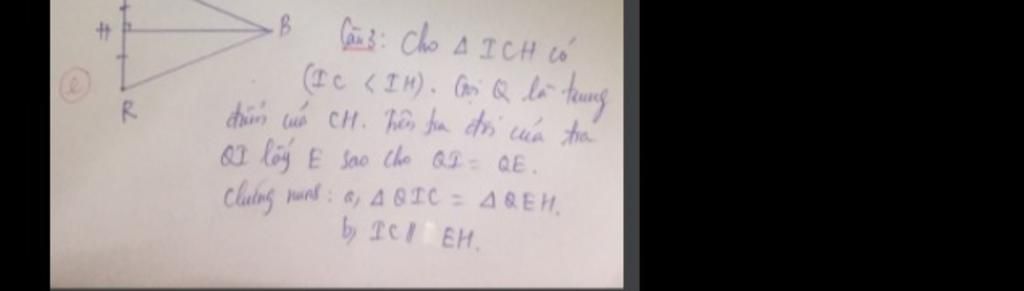 H
B
R
e
Câu 3: Cho Δ ICH có
(IC < IH). Gọi Q là trung
điểm của CH. Trên tia đối của tia
QI lấy E sao cho QI = QE.
Chứng minh: a, Δ QIC = Δ QEH.
b, IC // EH.